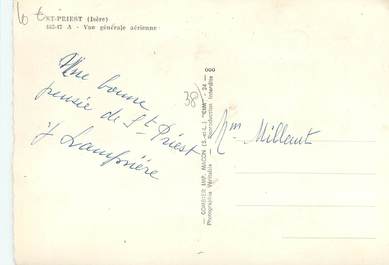 ST-PRIEST (Isère)
445-47 A - Vue générale aérienne
Une bonne
pensée de St Priest
J Lamprière
38
COMBIER IMP. MACON (S.-et-L.) "CIM"
Photographie Véritable - Reproduction Interdite
Mm Millaut